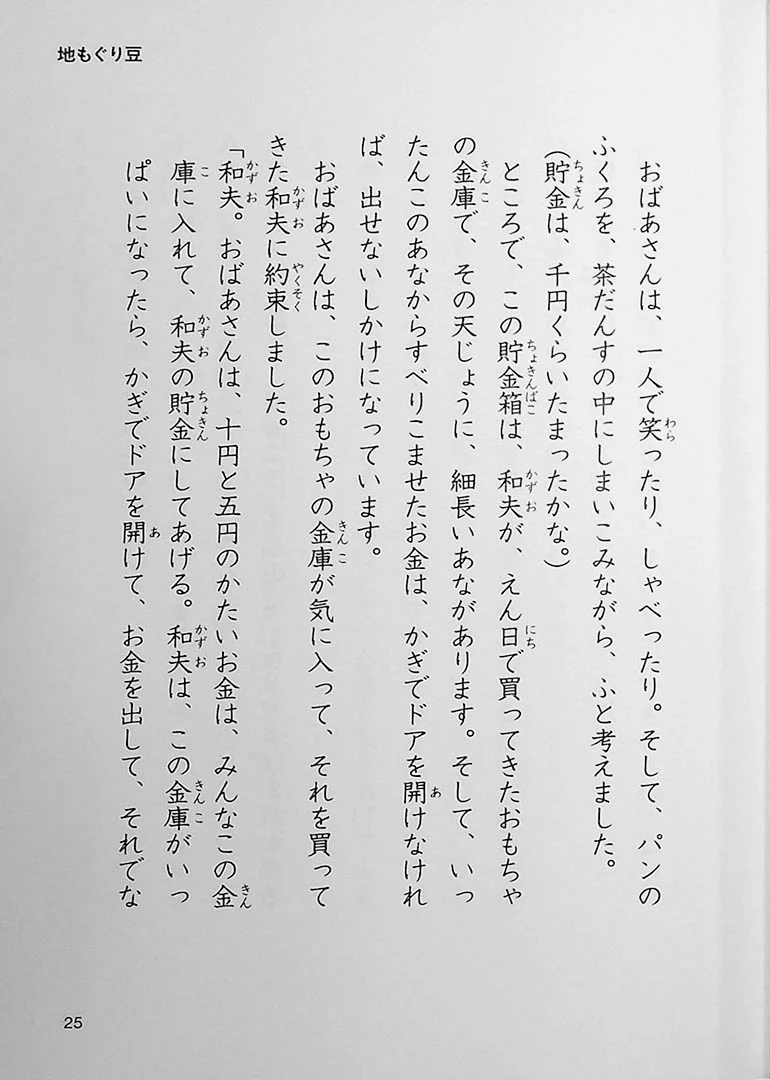 地もぐり豆
おばあさんは、一人で笑ったり、しゃべったり。そして、パンの
ふくろを、茶だんすの中にしまいこみながら、ふと考えました。
(貯金は、千円くらいたまったかな。)
ところで、この貯金箱は、和夫が、えん日で買ってきたおもちゃ
の金庫で、その天じょうに、細長いあながあります。そして、いっ
たんこのあなからすべりこませたお金は、かぎでドアを開けなけれ
ば、出せないしかけになっています。
おばあさんは、このおもちゃの金庫が気に入って、それを買って
きた和夫に約束しました。
「和夫。おばあさんは、十円と五円のかたいお金は、みんなこの金
庫に入れて、和夫の貯金にしてあげる。和夫は、この金庫がいっ
ぱいになったら、かぎでドアを開けて、お金を出して、それでな
25